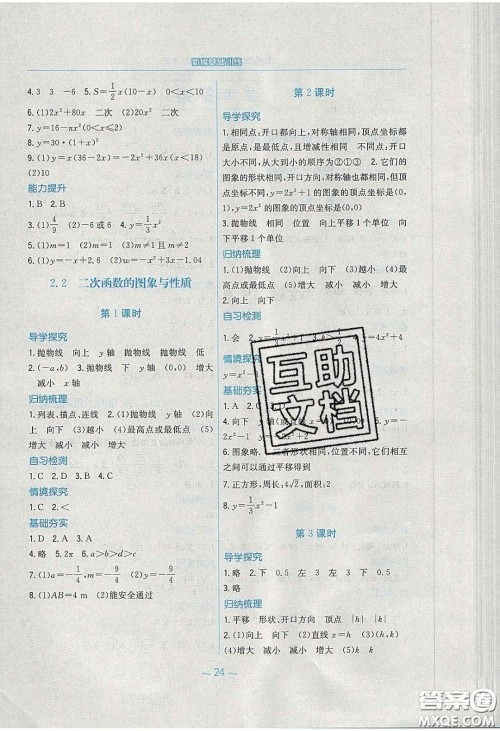 新编基础训练
4. 3 3 −6 5. S=1/2x(10−x) 0<x<10
6. (1)2x²+80x 二次 (2)20x² 二次
7. y=16−πx²(0<x<2)
8. y=30·(1+x)²
9. (1)y=x(36−2x)=−2x²+36x(0<x<18)
(2)10
能力提升
1. B 2. (1)4/9 (2)−6或6 4. y=1/3x²
5. (1)m=1 (2)m≠1且m≠−1
6. (1)m=2 (2)m=−3 y=−x−1.04
2.2 二次函数的图象与性质
第1课时
导学探究
1. 抛物线 向上 y轴 抛物线 抛物线 低
2. (−a,b) 3. 抛物线 下 y轴 (0,0) 增大
减小 x轴
归纳梳理
1. 列表、描点、连线 2. (1)抛物线 y轴 (2)向
上 向下 (3)小 (4)最高点或最低点 (5)增
大 减小 减小 增大
自习检测
1. C 2. D 3. B 4. C
情境探究
1. B 2. C
基础夯实
1. D 2. A 3. C
4. 略 5. 2π 6. a>b>d>c
8. (1)AB=4 m (2)能安全通过
第2课时
导学探究
1. 相同点:开口都向上,对称轴相同,顶点坐标都是
原点,是最低点,且增减性相同 不同点:开口
大小不同,从大到小的顺序为②①③ 2. 它们的
图象的形状相同,开口方向、对称轴也都相同,但
顶点坐标不同,y=2x²+1的顶点坐标是(0,
1),y=2x²的图象的顶点坐标是(0,0)
3. 抛物线 相同 位置 向上平移1个单位 向
下平移1个单位
归纳梳理
1. (1)抛物线 y轴 (2)最高点或最低点
2. 向上 向下
自习检测
1. 会 2.
情境探究
基础夯实
1. A 2.
4. 向下 y轴
6. 图象略 者形状相同,位置不同,它们相互
之间可以通过平移得到
7. 正方形,周长:4√2,面积:
8. y=1/3x²−1
第3课时
导学探究
1. 略 2. 下 0.5 左 3 左 3 下 0.5
3. 略
归纳梳理
1. 平移 形状、开口方向 顶点 |h| |h|
2. (1)向上 向下 (2)直线x=h (3)(h,0)
(4)增大 减小 减小 增大
～24～
互助
文档
答案圈
MXQE.COM